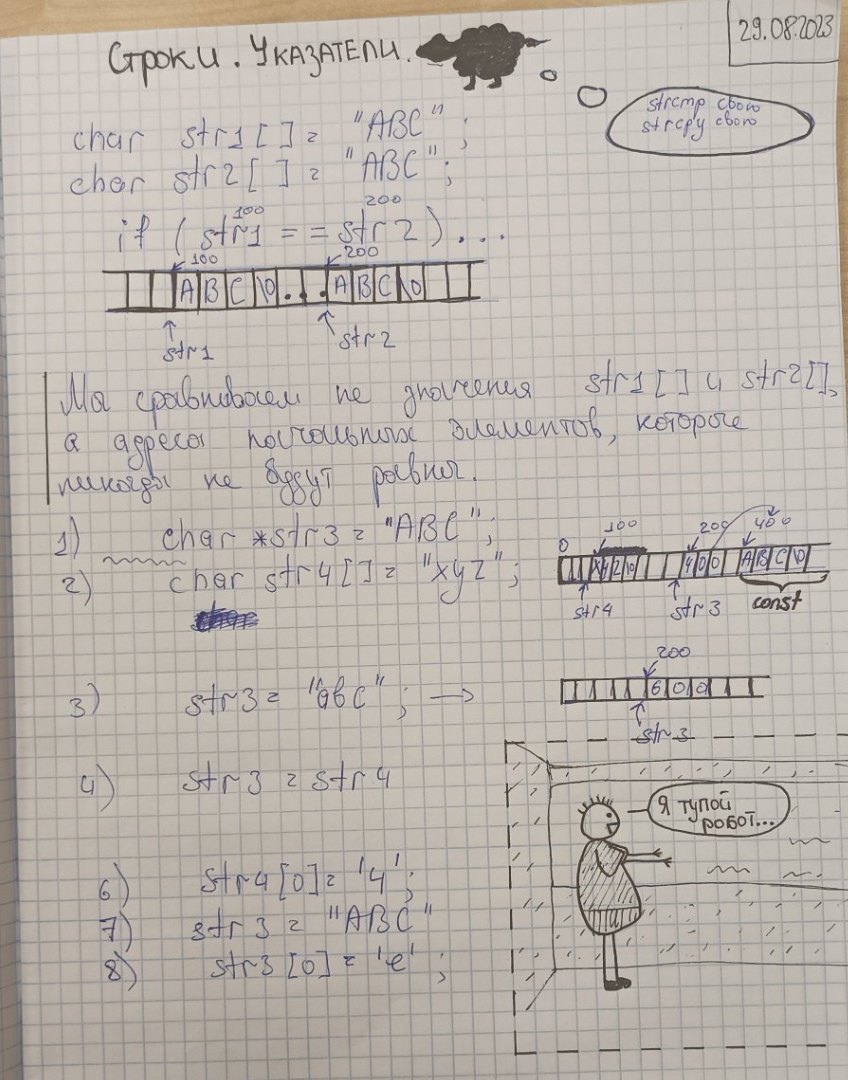 29.08.2023
Строки. Указатели.
strcmp свою
strcpy свою
char str1[] = "ABC";
char str2[] = "ABC";
100 200
if (str1 == str2)...
100 200
A B C \0 . . . A B C \0
str1 str2
Мы сравниваем не значения str1[] и str2[],
а адреса начальных элементов, которые
никогда не будут равны.
1) char *str3 = "ABC";
2) char str4[] = "xyz";
0 100 200 400
x y z \0 4 0 0 A B C \0
str4 str3 const
200
3) str3 = "abc"; →
6 0 0
str3
4) str3 = str4
Я тупой
робот...
6) str4[0] = '4';
7) str3 = "ABC"
8) str3[0] = 'e';